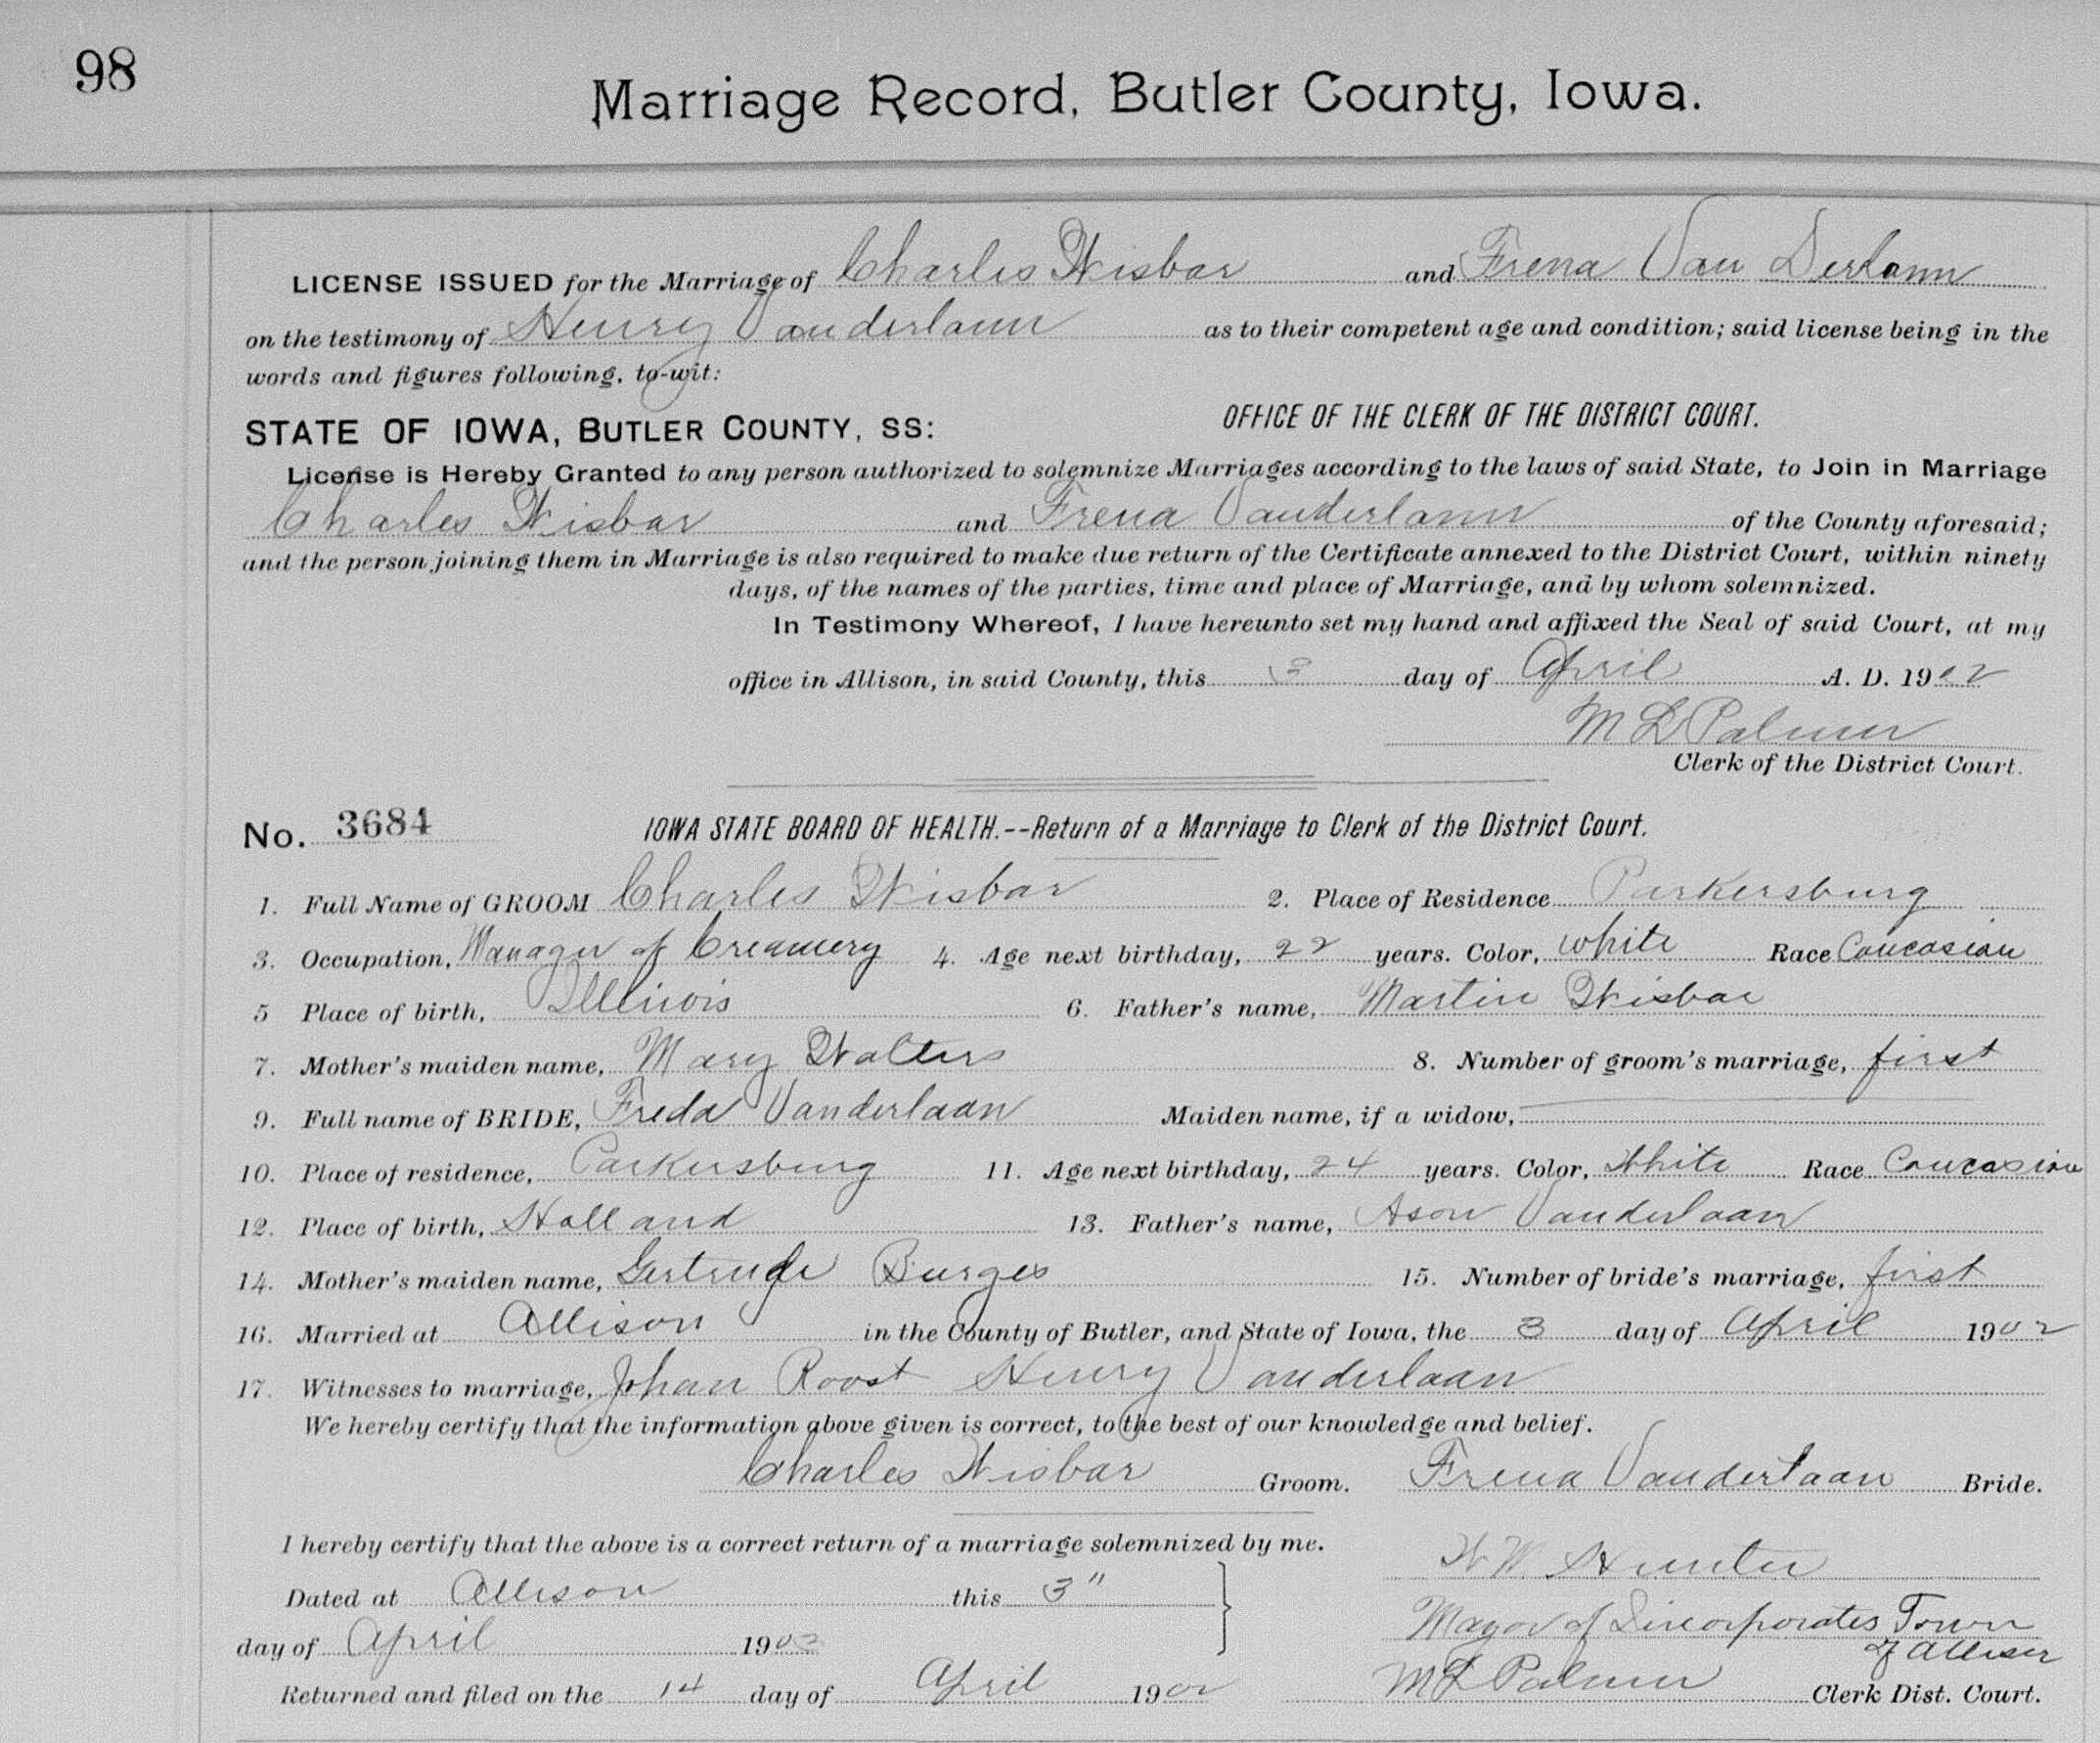 98
Marriage Record, Butler County, Iowa.
LICENSE ISSUED for the Marriage of Charles Wisbar and Frena Van Derlann
on the testimony of Henry Vanderlann as to their competent age and condition; said license being in the
words and figures following, to-wit:
STATE OF IOWA, BUTLER COUNTY, SS: OFFICE OF THE CLERK OF THE DISTRICT COURT.
License is Hereby Granted to any person authorized to solemnize Marriages according to the laws of said State, to Join in Marriage
Charles Wisbar and Frena Vanderlann of the County aforesaid;
and the person joining them in Marriage is also required to make due return of the Certificate annexed to the District Court, within ninety
days, of the names of the parties, time and place of Marriage, and by whom solemnized.
In Testimony Whereof, I have hereunto set my hand and affixed the Seal of said Court, at my
office in Allison, in said County, this 3 day of April A. D. 1902
M L Palmer
Clerk of the District Court.
No. 3684 IOWA STATE BOARD OF HEALTH.--Return of a Marriage to Clerk of the District Court.
1. Full Name of GROOM Charles Wisbar 2. Place of Residence Parkersburg
3. Occupation, Manager of Creamery 4. Age next birthday, 22 years. Color, white Race Caucasian
5 Place of birth, Illinois 6. Father's name, Martin Wisbar
7. Mother's maiden name, Mary Walters 8. Number of groom's marriage, first
9. Full name of BRIDE, Freda Vanderlaan Maiden name, if a widow,
10. Place of residence, Parkersburg 11. Age next birthday, 24 years. Color, White Race Caucasian
12. Place of birth, Holland 13. Father's name, Vanderlaan
14. Mother's maiden name, Gertrude Burges 15. Number of bride's marriage, first
16. Married at Allison in the County of Butler, and State of Iowa, the 3 day of April 1902
17. Witnesses to marriage, Johan Roost Henry Vanderlaan
We hereby certify that the information above given is correct, to the best of our knowledge and belief.
Charles Wisbar Groom. Frena Vanderlaan Bride.
I hereby certify that the above is a correct return of a marriage solemnized by me.
W W Hunter
Dated at Allison this 3"
Mayor of Incorporates Town
of Allison
day of April 1902
Returned and filed on the 14 day of April 1902 M L Palmer Clerk Dist. Court.